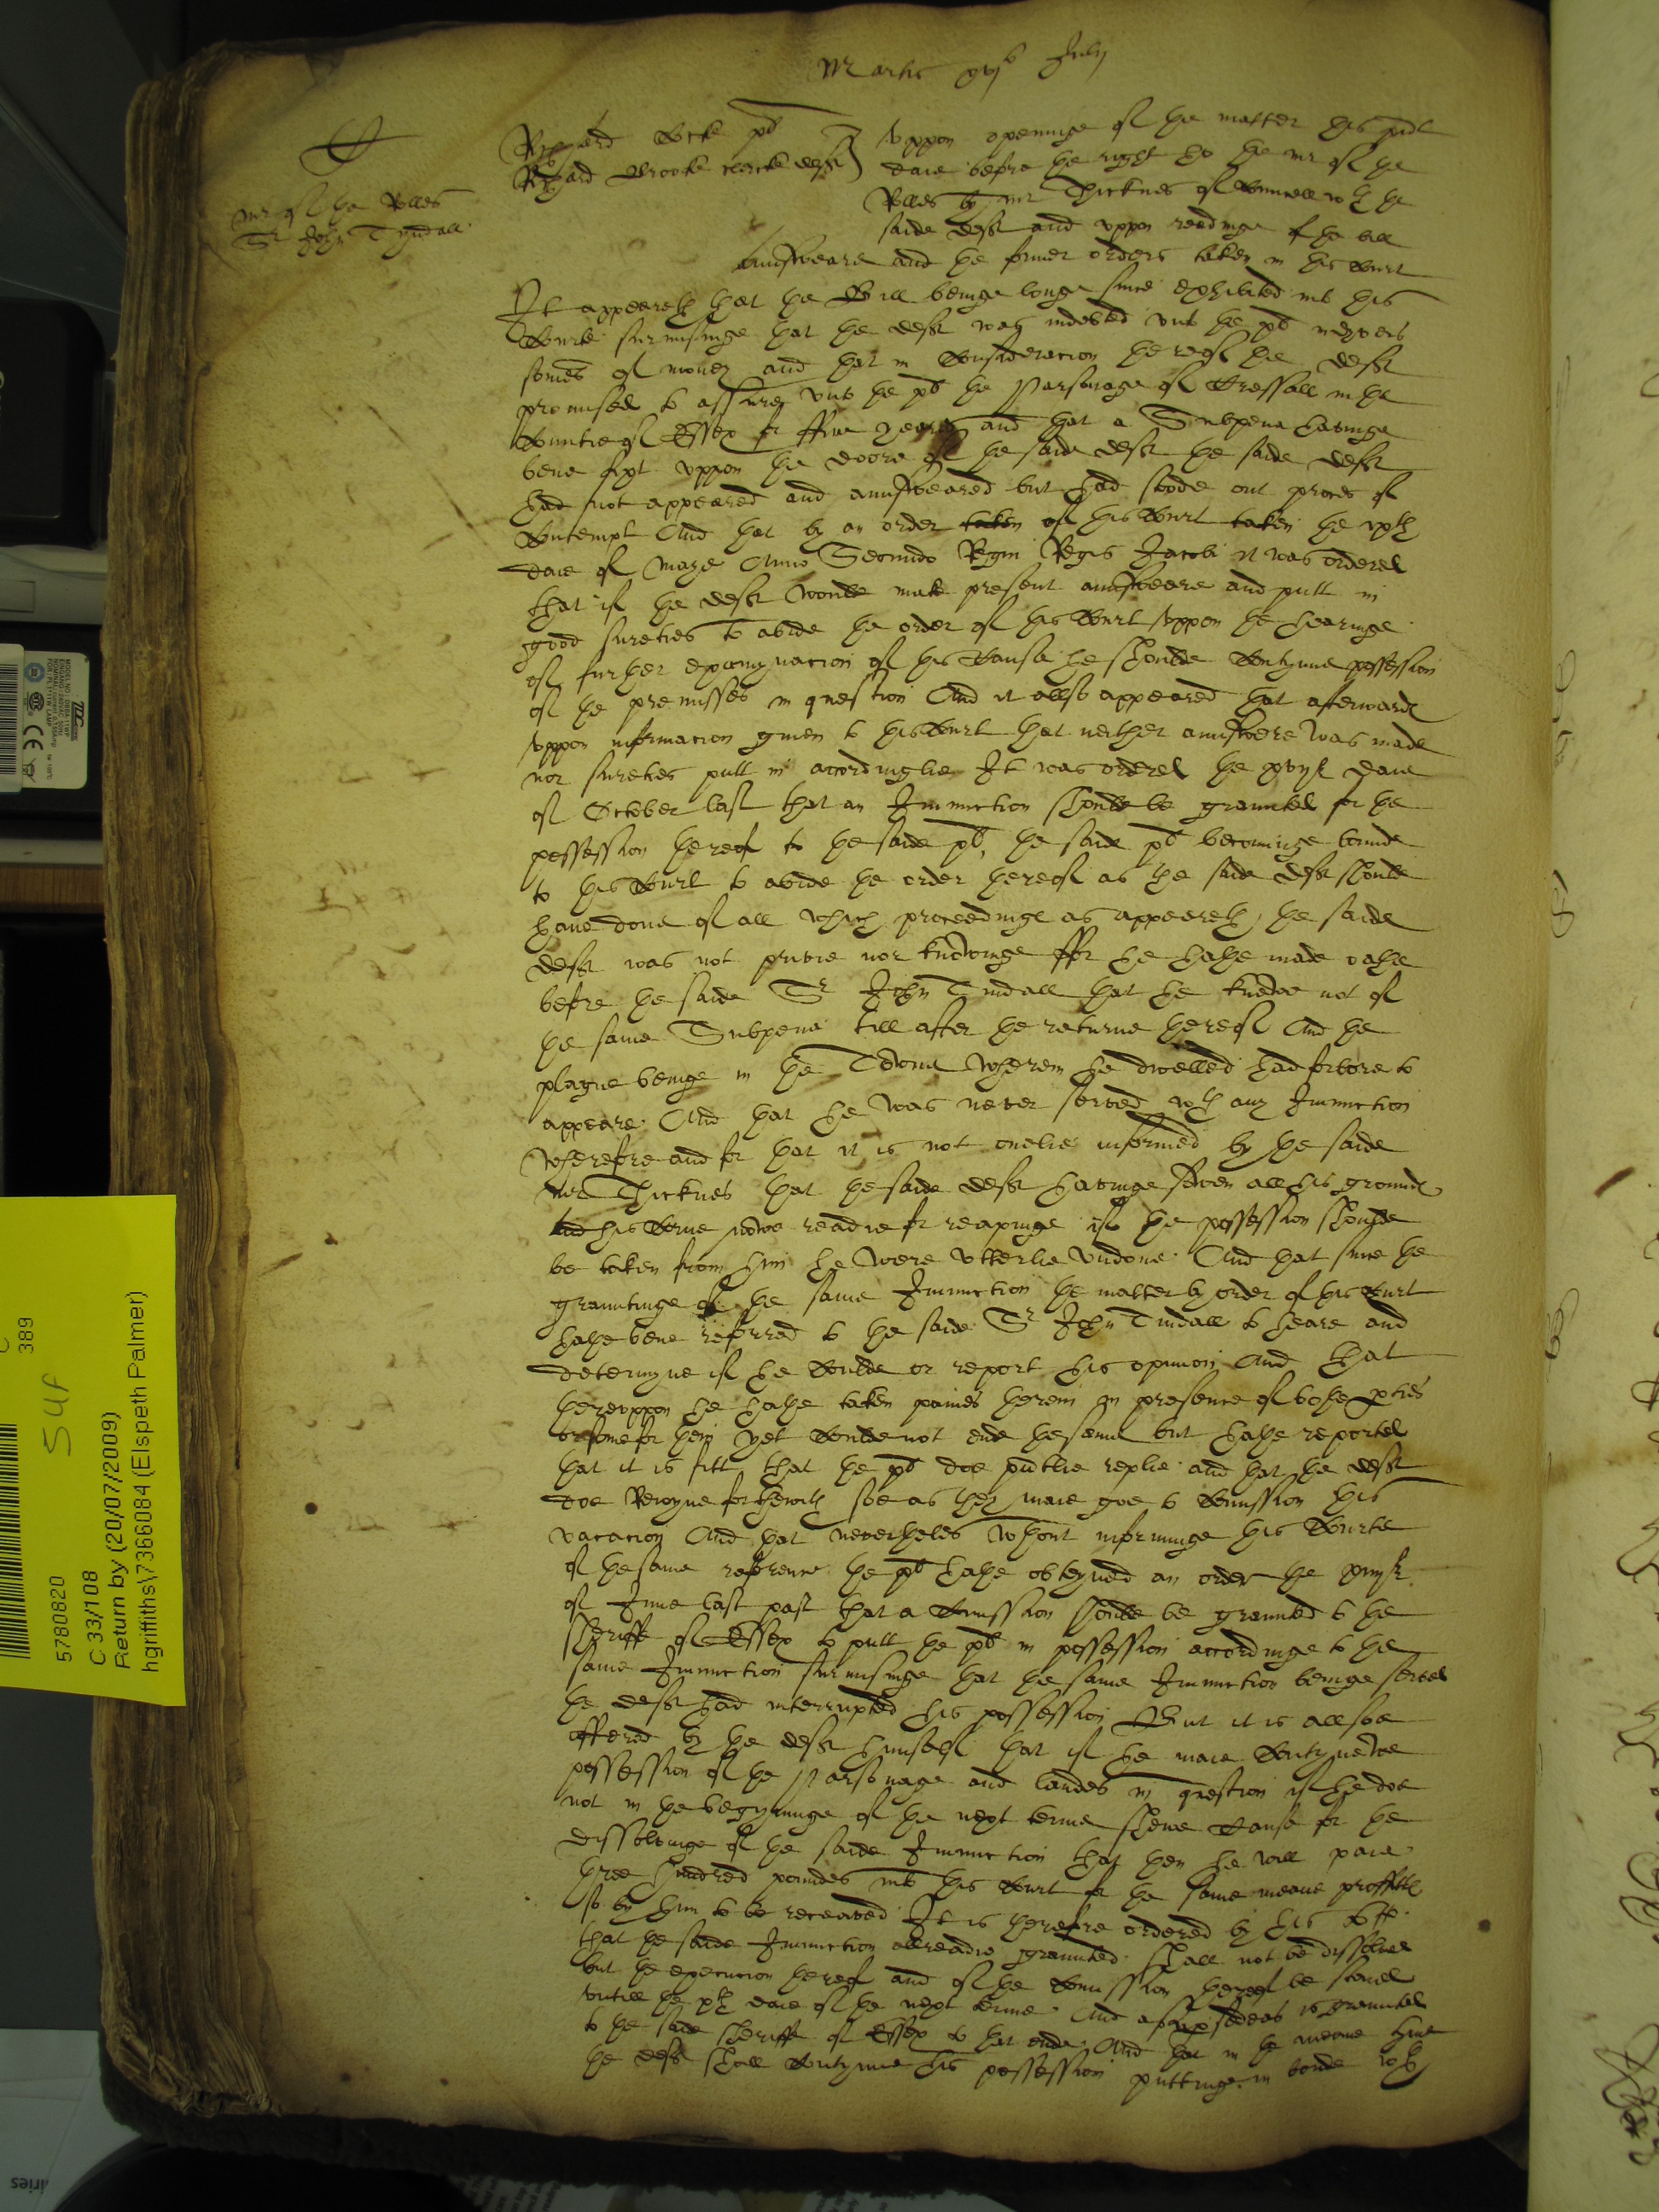 Martis xvj° Julij
Mr of the Rolles
Sr John Tyndall
Richard plt
Richard Brooke clerke deft
Uppon openinge of the matter this pnte
daie before the right ho the mr of the
Rolles by mr Thicknes of Councell wth the
saide deft and uppon readinge of the bill
Aunsweare and the former orders taken in this Court
It appeareth that the Bill beinge longe since exhibited into this
Courte surmisinge that the deft was indebted unto the plt in divers
somes of money and that in Consideracion thereof the deft
promised to assure unto the plt the Parsonage of in the
Countie of Essex for ffive yeares and that a Subpena havinge
bene fixt uppon the doore of the saide deft the saide deft
had not appeared and aunsweared but had stoode out proces of
Contempt And that by an order taken of this Court taken the xvth
daie of Maye Anno Secundo Regni Regis Jacobi it was ordered
that if the deft woulde make present aunsweare and putt in
good sureties to abide the order of this Court uppon the hearinge
of further examynacion of this Cause he shoulde Contynue possession
of the premisses in question And it allso appeared that afterwards
uppon informacion given to this Court that neither aunsweare was made
nor sureties putt in accordinglie It was ordered the xviijth daie
of October last that an Iniunction shoulde be graunted for the
possession thereof to the saide plt, the saide plt becominge bounde
to this Court to abide the order thereof as the saide deft shoulde
have done of all which proceedinge as appeareth, the saide
deft was not privie nor knowinge ffor he hathe made oathe
before the saide Sr John Tindall that he knewe not of
the same Subpena till after the returne thereof And the
plague beinge in the Towne wherein he dwelled had forbore to
appeare And that he was never served wth any Iniunction
wherefore and for that it is not onelie informed by the saide
Mr Thicknes that the saide deft havinge sowen all his grounde
and his Corne nowe readie for reapinge if the possession shoulde
be taken from him he were utterlie undone And that since the
grauntinge of the same Iniunction the matter by order of this Court
hathe bene referred to the saide Sr John Tindall to heare and
determyne if he Coulde or report his opinion And that
thereuppon he hathe taken paines therein in presence of bothe pties
or some for them yet Coulde not ende the same but hathe reported
that it is fitt that the plt doe putt in replie and that the deft
doe Reioyne forthwith soe as they maie goe to Comission this
vacacion And that neverthelesse without informinge this Courte
of the same reference the plt hathe obteyned an order the
of June last past that a Comission shoulde be graunted to the
Sheriffe of Essex to putt the plt in possession accordinge to the
same Iniunction surmisinge that the same Iniunction beinge served
the deft had interrupted his possession But it is allsoe
offered by the deft himself that if he maie Contynewe
possession of the Parsonage and landes in question if he doe
not in the begynninge of the next terme shewe Cause for the
dissolvinge of the saide Iniunction that then he will paie
three hundred poundes into this Court for the same meane proffitts
so by him to be receaved It is therefore ordered by this Court
that the saide Iniunction allreadie graunted shall not be dissolved
but the execucion thereof and of the Comission thereof be staied
untill the xth daie of the next terme And a Supsedeas is graunted
to the saide Sheriffe of Essex to that ende And that in the meane time
the deft shall Contynue his possession puttinge in bonde wth
5780820
C 33/108
Return by (20/07/2009)
hgriffiths\7366084 (Elspeth Palmer)
389